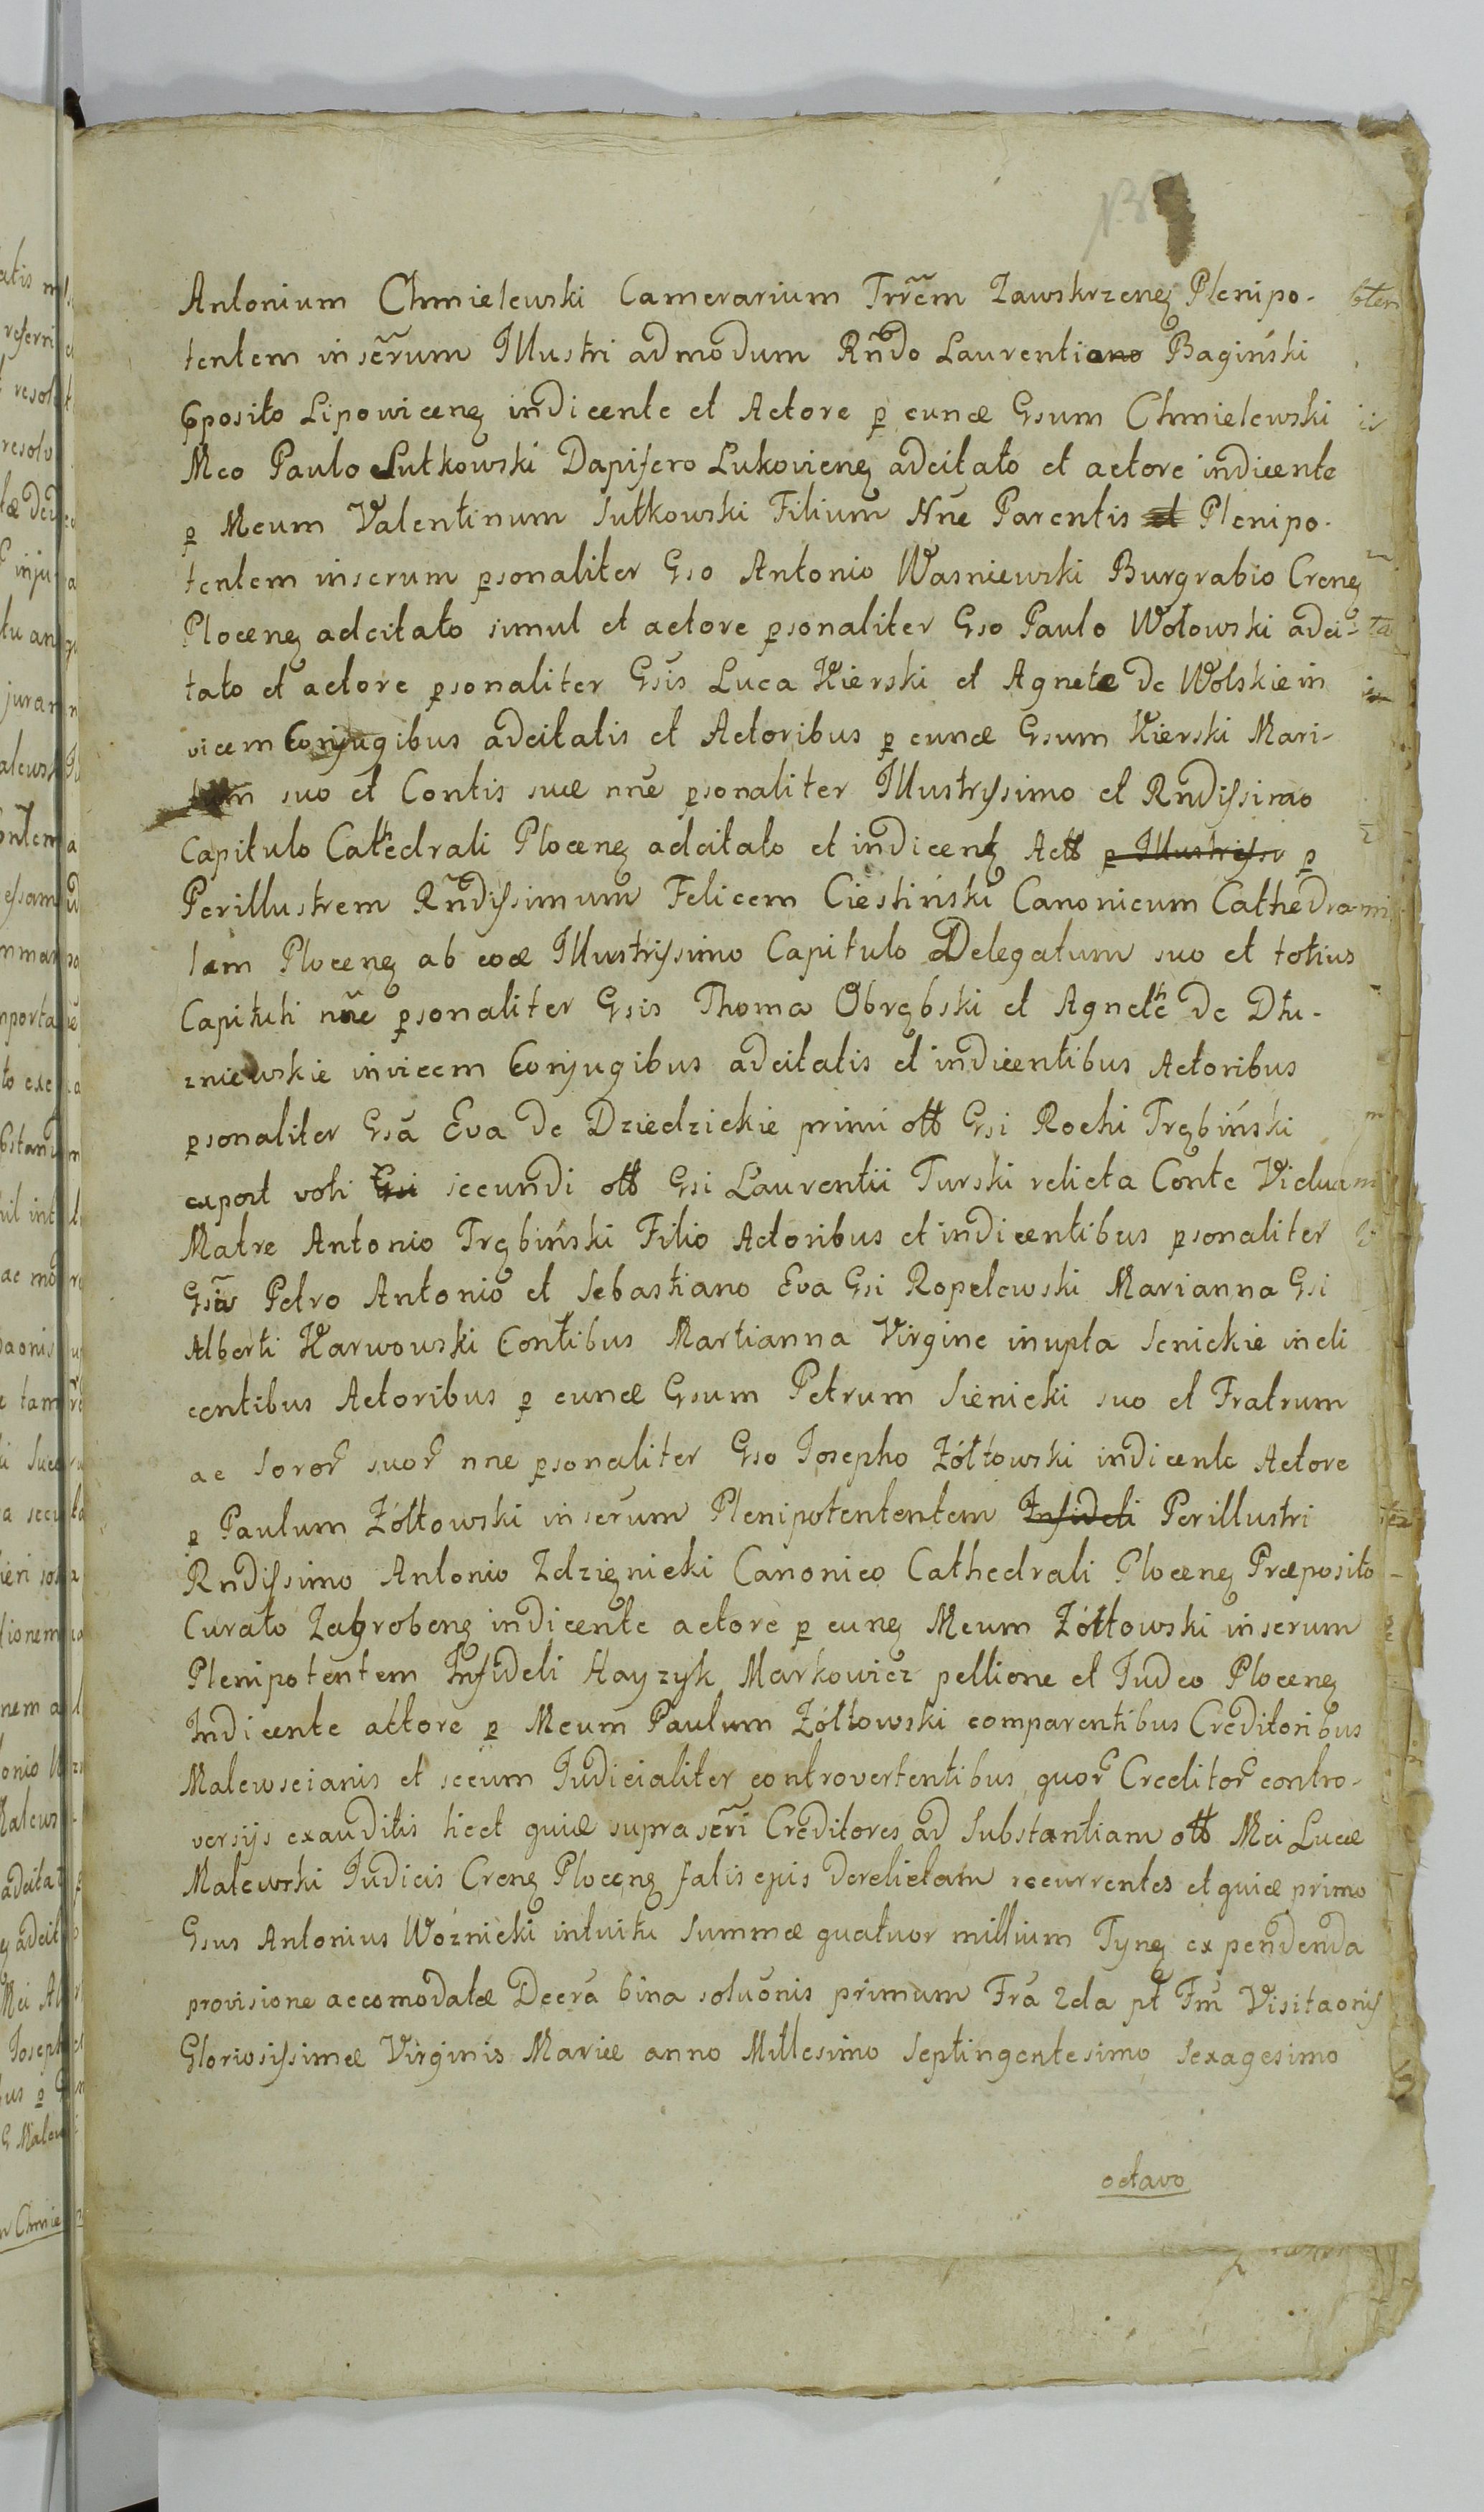 Antonium Chmielewski Camerarium Trrẽm Zawskrzeneș Plenipo-
tentem inserum Illustri admodum Rndo Laurentiano Bagiński
Pposito Lipoviceneș indicente et Actore p eunde Gsum Chmielewski
Mco Paulo Sutkowski Dapifero Lukovieneș adcitato et actore indicente
p Mcum Valentinum Sutkowski Filium Nne Parentis et Plenipo-
tentem inserum psonaliter Gso Antonio Wasniewski Burgrabio Creneș
Ploceneș adcitato simul et actore psonaliter Gso Paulo Wołowski adci-
tato et actore psonaliter Gsis Luca Kierski et Agnete de Wolskie in
vicem Conjugibus adcitatis et Actoribus p eunde Gsum Kierski Mari-
suo et Contis suæ nne psonaliter Illustrissimo et Rndissimo
Capitulo Cathedrali Ploceneș adcitato et indiceneș Actt p Illustrisso p
Perillustrem Rndissimum Felicem Ciestiński Canonicum Cathedra-
lem Ploceneș ab eod Illustrissimo Capitulo Delegatum suo et totius
Capituli nne psonaliter Gsis Thoma Obrębski et Agneth de Dłu-
zniewskie invicem Conjugibus adcitatis et indicentibus Actoribus
psonaliter Gsa Eva de Dziedzickie primi ott Gsi Rochi Trębiński
expost voti Gsi secundi ott Gsi Laurentii Turski relicta Conte Vidua
Matre Antonio Trębiński Filio Actoribus et indicentibus psonaliter
Gsis Petro Antonio et Sebastiano Eva Gsi Ropelewski Marianna Gsi
Alberti Karwowski Contibus Martianna Virgine inupta Senickie indi
centibus Actoribus p eunde Gsum Petrum Sienicki suo et Fratrum
ac Soror suor nne psonaliter Gso Josepho Zółtowski indicente Actore
p Paulum Zółtowski inserum Plenipotententem Infideli Perillustri
Rndissimo Antonio Zdzięnicki Canonico Cathedrali Ploceneș Præposito
Curato Zagrobeneș indicente actore p euneș Mcum Zółtowski inserum
Plenipotentem Infideli Hayzyk Markowicz pellione et Judeo Ploceneș
Indicente attore p Mcum Paulum Zółtowski comparentibus Creditoribus
Malewscianis et secum Judicialiter controvertentibus quor Creditor contro-
versijs exauditis licet quid suprascri Creditores ad Substantiam ott Mci Lucæ
Malewski Judicis Creneș Ploceneș fatis ejus derelictam recurrentes et quid primo
Gsus Antonius Woźnicki intuitu Summæ quatuor millium Tyneș ex pendenda
provisione accomodatæ Decra bina soluonis primum Fra 2da pt Fm Visitaonis
Gloriosissimæ Virginis Mariæ anno Millesimo Septingentesimo Sexagesimo
octavo